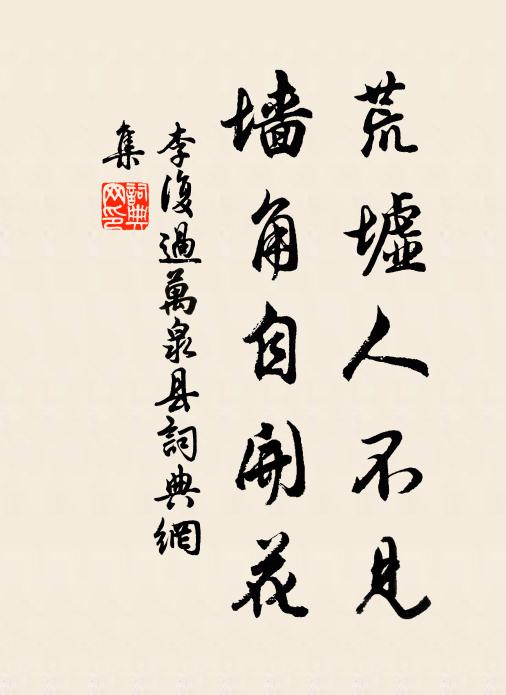 荒墟人不見
墙角自開花
李復過萬泉县詞典網
集
詞典网印